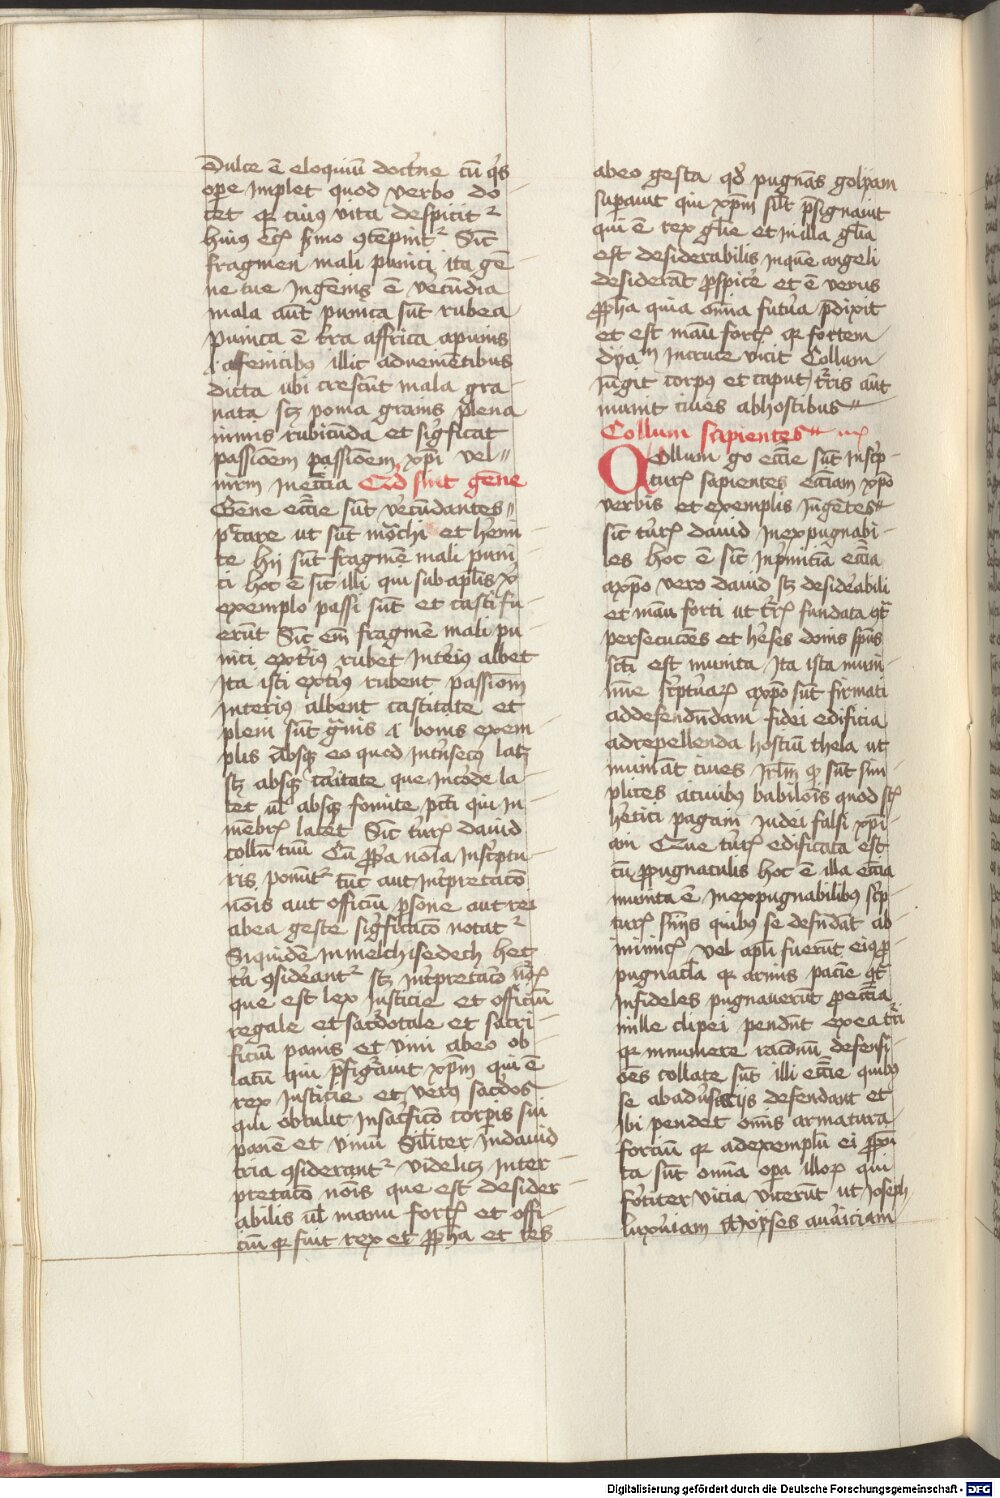 Dulce ē eloquiū doct'ne cū q's
op̄e implet quod verbo do
cet qr cuius vita despicit2
huius ēc s̄mo 9tēpnit2 Sic̄
fragmen mali punici ita gē
ne tue Ingēnis ē vecūdia
mala aūt punica sūt rubea
punica ē t'ra affrica apunis
affenicibus illic advenientibus
dicta ubi crescūt mala gra
nata scz poma granis plena
nimis rubicūda et sig'ficāt
passionem passionem xpi vel
mr̄m inecc̄ia Qd sint gēne
Gēne ecc̄ie sūt vēcūdantes
p'care ut sūt mōchi et hemi
te hij sūt fragmē mali puni
ci hoc ē sic illi qui sub apl̄is xp̄i
exemplo passi sūt et casti fu
erūt Sic em̄ fragmē mali pu
nici ext'ius rubet Int'ius albet
Ita isti ext'ius rubent passiōm
Interius albent castitate et
pleni sūt g̃nis i bonis exem
plis Absqz eo quod Int'nsecus latz
scz absqz caritate que Incorde la
tet ul' absqz fomite pcc̄i qui in
mēbr' latet Sic̄ tur' david
collū tuū Cū ꝓp'a noīa Inscptu
ris ponūt2 tūc aut Int'pretac̄o
nois aut officiū p'sone aut rei
abea geste sig'ficac̄o notat2
Siquidē In melchisedech hec
t'a 9sid'ant2 scz Int'pretac̄o
que est lex Justicie et officiū
regale et sacdotale et sacri
ficiū panis et vini abeo ob
latū qui p̄fig'avit xp̄m qui ē
rex Justicie et verus sacdos
qui obtulit Insacficio corpis sui
panē et vinū Silit̄er In david
tria 9siderant2 videlicz Inter
pretac̄o nois que est desider
abilis ul' manu fort' et offi
ciū qr fuit rex et ꝓpha et res
abeo gesta qd pugnās golyam
supavit qui xp̄m silt p̄signavit
qui ē rex gl̄ie et In illa gl̄ia
est desiderabilis Inquē angeli
desiderāt ꝓspic'e et ē verus
ꝓpha quia om̄ia futura p̄dixit
et est manu fort' qr fortem
dya᷑m Incruce vicit Collum
iūgit corpus et caput, t'ris aūt
munit cives abhostibus
Collum sapientes
Collum go ecc̄ie sūt Inscp
tur' sapientes ecc̄iam xp̄o
verbis et exemplis Iūgētes
sic tur' david Inexpugnabi
les hoc ē sic Inp'mitia ecc̄ia
axp̄o vero david scz desiderabili
et manu forti ut t'r' fundata 9t̄
persecuc̄oes et h'eses donis sp̄us
sc̄ti est munita Ita ista muni
mine sc'ptuar' axp̄o sūt firmati
addefendendam fidei edificia
adrepellenda hostiū thela ut
muniāt cives Jrlm̄ qr sūt sim
plices acuibus babilois quod st'
h'etici pagani Judei falsi xp̄i
ani Que tur' edificata est
cū ꝓpugnaculis hoc ē illa ecc̄ia
munita ē Inexpugnabilibus sc'p
tur' sniis quibus se defendāt ab
inimic' vel apl̄i fuerūt eiꝰ ꝓ
pugnacl̄a qr armis pacīe 9t̄
Infideles pugnaverūt ꝓ ecc̄ia
mille clipei pendent exea t'ri
qr innumere rac̄onū defensi
ōes collate sūt illi ecc̄ie quibus
se abadūsarijs defendant et
ibi pendet om̄is armatura
fortiū qr adexemplū ei ꝓpoi
ta sūt om̄ia opa illor' qui
fortiter vicia vicerūt ut Joseph
luxuriam Moyses avariciam
Digitalisierung gefördert durch die Deutsche Forschungsgemeinschaft - DFG